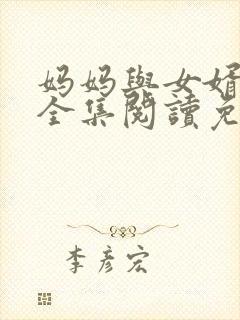 妈妈與女婿
全集閱讀免
李彥宏